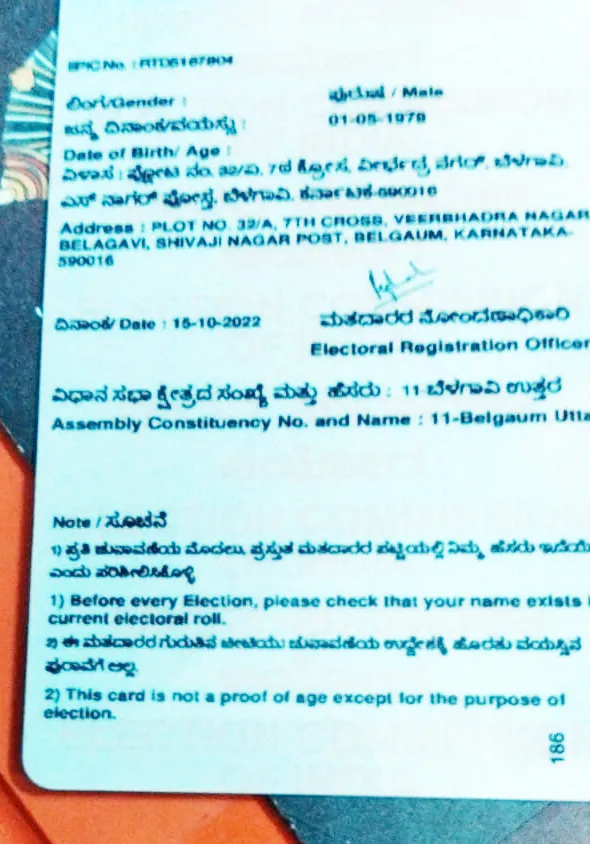 EPIC No. : RTD5167804
ಲಿಂಗ/Gender : ಪುರುಷ / Male
ಜನ್ಮ ದಿನಾಂಕ/ವಯಸ್ಸು : 01-05-1979
Date of Birth/ Age :
ವಿಳಾಸ : ಪ್ಲೋಟ ನಂ. 32/ಎ, 7ಥ ಕ್ರೋಸ, ವೀರ್ಭದ್ರ ನಗರ್, ಬೆಳಗಾವಿ,
ಎಸ್ ನಾಗರ್ ಪೋಸ್ಟ, ಬೆಳಗಾವಿ, ಕರ್ನಾಟಕ-590016
Address : PLOT NO. 32/A, 7TH CROSS, VEERBHADRA NAGAR
BELAGAVI, SHIVAJI NAGAR POST, BELGAUM, KARNATAKA-
590016
ದಿನಾಂಕ/ Date : 15-10-2022 ಮತದಾರರ ನೋಂದಣಾಧಿಕಾರಿ
Electoral Registration Officer
ವಿಧಾನ ಸಭಾ ಕ್ಷೇತ್ರದ ಸಂಖ್ಯೆ ಮತ್ತು ಹೆಸರು : 11-ಬೆಳಗಾವಿ ಉತ್ತರ
Assembly Constituency No. and Name : 11-Belgaum Utta
Note / ಸೂಚನೆ
1) ಪ್ರತಿ ಚುನಾವಣೆಯ ಮೊದಲು, ಪ್ರಸ್ತುತ ಮತದಾರರ ಪಟ್ಟಿಯಲ್ಲಿ ನಿಮ್ಮ ಹೆಸರು ಇದೆಯೆ
ಎಂದು ಪರಿಶೀಲಿಸಿಕೊಳ್ಳಿ
1) Before every Election, please check that your name exists i
current electoral roll.
2) ಈ ಮತದಾರರ ಗುರುತಿನ ಚೀಟಿಯು ಚುನಾವಣೆಯ ಉದ್ದೇಶಕ್ಕೆ ಹೊರತು ವಯಸ್ಸಿನ
ಪುರಾವೆಗೆ ಅಲ್ಲ.
2) This card is not a proof of age except for the purpose of
election.
186